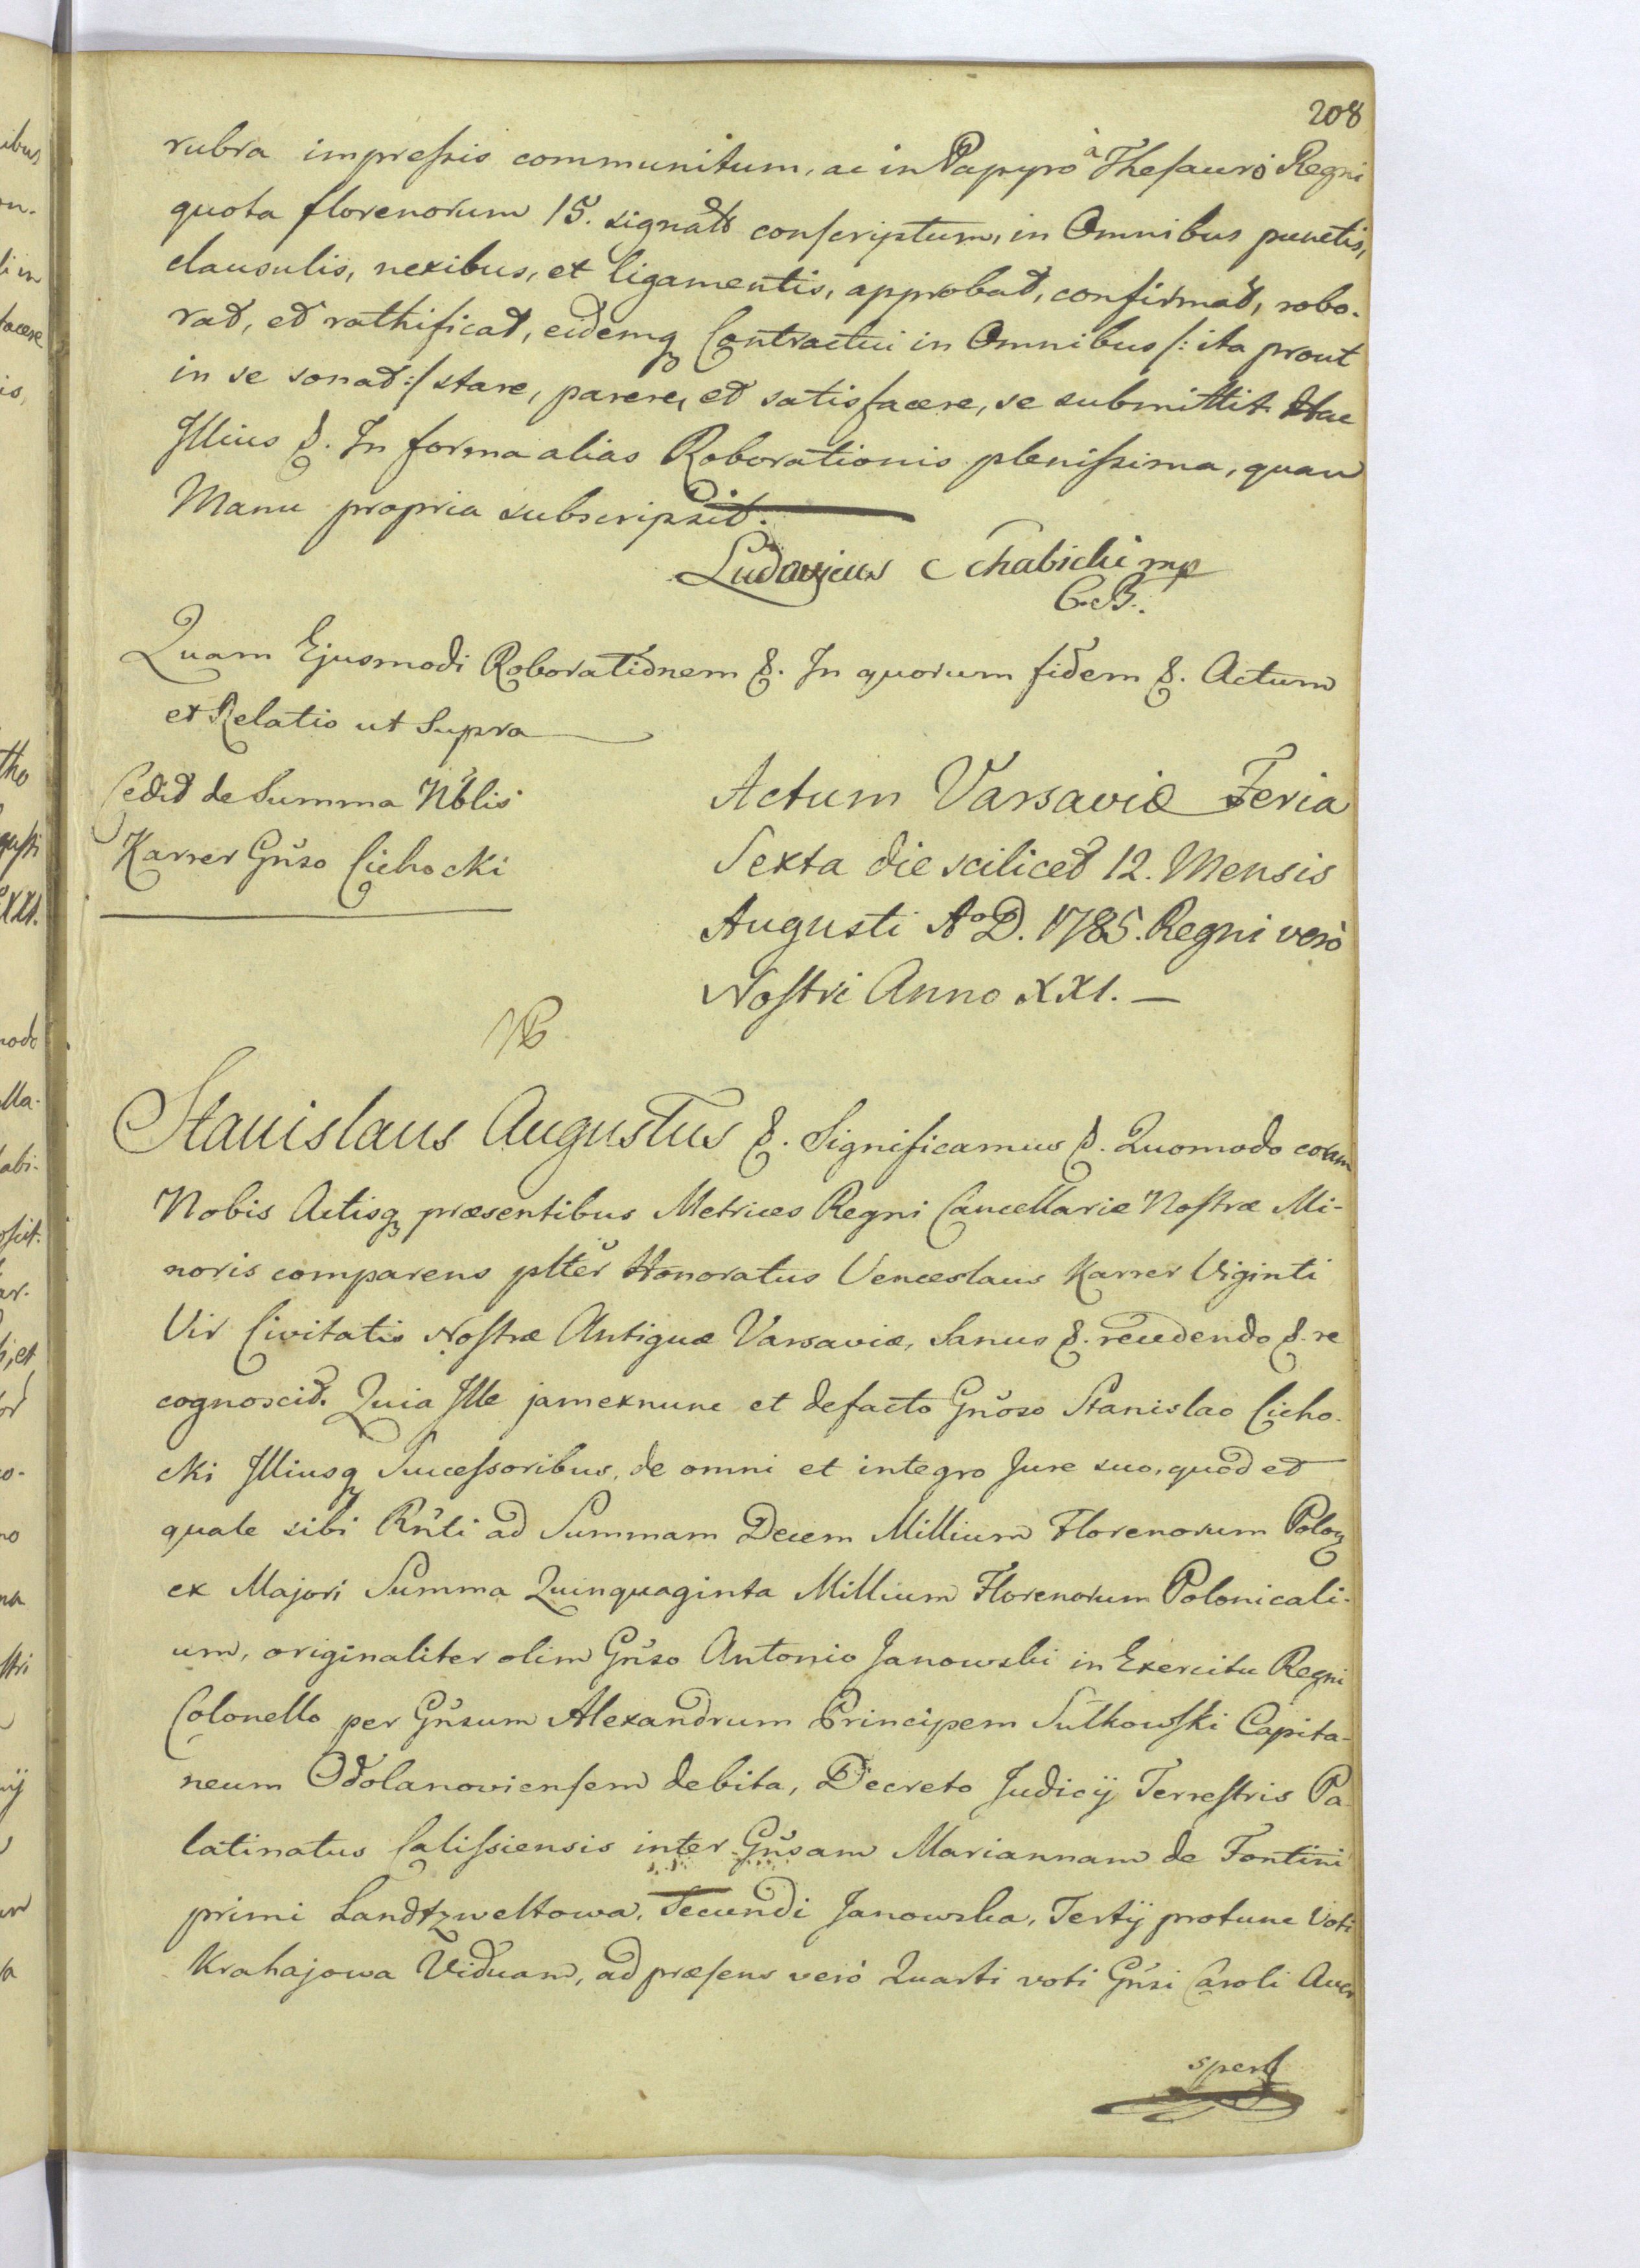 208
rubra impreſsis communitum, ac in Papyro à Theſauro Regni
quota florenorum 15. signato conſcriptum, in Omnibus punctis,
clausulis, nexibus, et ligamentis, approbat, confirmat, robo-
rat, et rathificat, eidemq Contractui in Omnibus /: ita prout
in se sonat :/ stare, parere, et satisfacere, se submittit
Illius &. In forma alias Roborationis pleniſsima, quam
Manu propria subscripsit.
Ludovicus mp
C.B.
Quam Ejusmodi Roborationem &. In quorum fidem &. Actum
et Relatio ut Supra
Cedit de Summa Nblis
Karrer Gnso Cichocki
Actum Varsaviæ Feria
Sexta die scilicet 12. Mensis
Augusti Ao D. 1785. Regni verò
Noſtri Anno XXI. —
Stanislaus Augustus &. Significamus &. Quomodo coram
Nobis Actisq præsentibus Metrices Regni Cancellariæ Noſtræ Mi-
noris comparens plter Honoratus Venceslaus Karrer Viginti
Vir Civitatis Noſtræ Antiquæ Varsaviæ, Sanus &. recedendo &. re
cognoscit. Quia Ille jamexnunc et defacto Gnoso Stanislao Cicho-
cki Illiusq Succeſsoribus, de omni et integro Jure suo, quod et
quale sibi Rnti ad Summam Decem Millium Florenorum Polon
ex Majori Summa Quinquaginta Millium Florenorum Polonicali-
um, originaliter olim Gnso Antonio Janowski in Exercitu Regni
Colonello per Gnsum Alexandrum Principem Sułkowſki Capita-
neum Odolanovienſem debita, Decreto Judicÿ Terreſtris Pa-
latinatus Caliſsiensis inter Gnsam Mariannam de Fontini
primi Landtzweltowa, Secundi Janowska, Tertÿ protunc Voti
Krahajowa Viduam, ad præſens verò Quarti voti Gnsi Caroli Auer
sperg